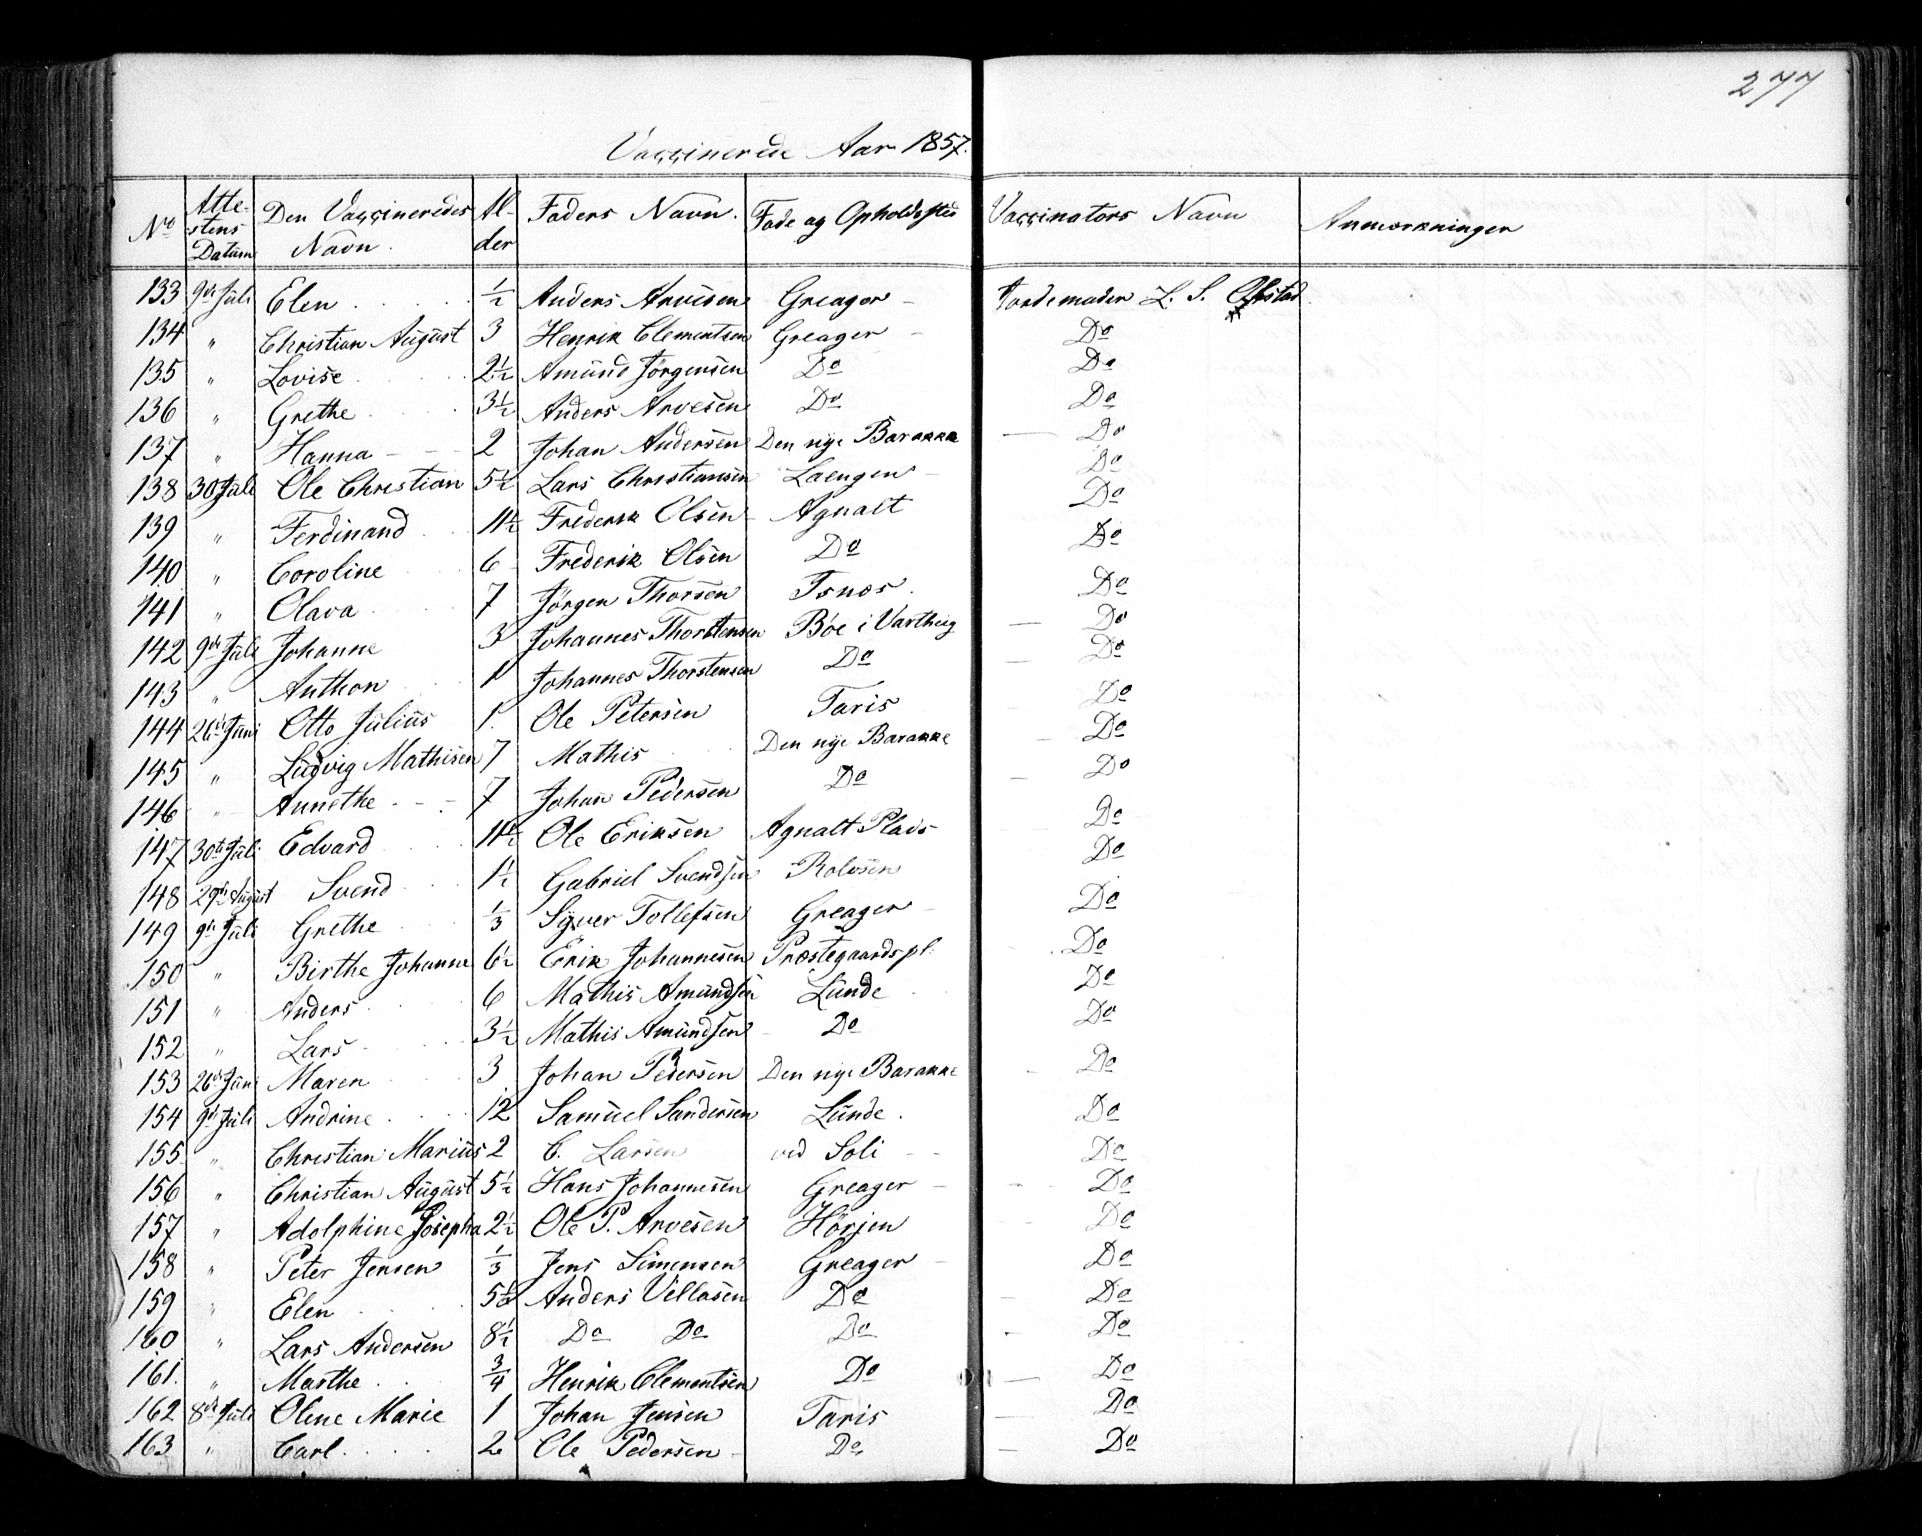 277
Vaccinerede Aar 1857.
No | Atte-stens Datum | Den Vaccineredes Navn. | Al-der | Faders Navn. | Føde og Opholdssted | Vaccinators Navn | Anmærkninger
133 9de Juli Elen ½ Anders Arvesen Greager Jordemoder L. S.
134 " Christian August 3 Henrik Clementsen Greager Do
135 " Lovise 2½ Amund Jörgensen Do Do
136 " Grethe 3½ Anders Arvesen Do Do
137 " Hanna 2 Johan Andersen Den nye Barakke Do
138 30 Juli Ole Christian 5½ Lars Christiansen Laengen Do
139 " Ferdinand 11½ Frederik Olsen Agnalt Do
140 " Caroline 6 Frederik Olsen Do Do
141 " Olava 7 Jörgen Thorsen Tsnæs. Do
142 9de Juli Johanne 3 Johannes Thorstensen Böe i Varteig Do
143 " Anthon 1 Johannes Thorstensen Do Do
144 26de Juni Otto Julius 1. Ole Petersen Taris Do
145 " Ludvig Mathisen 7 Mathis Den nye Barakke Do
146 " Annethe 7 Johan Pedersen Do Do
147 30te Juli Edvard 11½ Ole Eriksen Agnalt Plads Do
148 29de August Svend 1½ Gabriel Svendsen Rolvsen Do
149 9de Juli Grethe ⅓ Syver Tollefsen Greager Do
150 " Birthe Johanne 6½ Erik Johannesen Præstegaardspl. Do
151 " Anders 6 Mathis Amundsen Lunde Do
152 " Lars 3½ Mathis Amundsen Do Do
153 26de Juni Maren 3 Johan Pedersen Den nye Barakke Do
154 9de Juli Andrine 12 Samuel Sandersen Lunde. Do
155 " Christian Marius 2 C. Larsen ved Soli Do
156 " Christian August 5½ Hans Johannesen Greager Do
157 " Adolphine Josepha 2½ Ole P. Arvesen Hörjen Do
158 " Peter Jensen ⅓ Jens Simensen Greager Do
159 " Elen 5½ Anders Villasen Do Do
160 " Lars Andersen 8½ Do Do Do Do
161. " Marthe ¾ Henrik Clementsen Do Do
162 8de Juli Oline Marie 1 Johan Jensen Taris Do
163 " Carl 2 Ole Pedersen Do Do